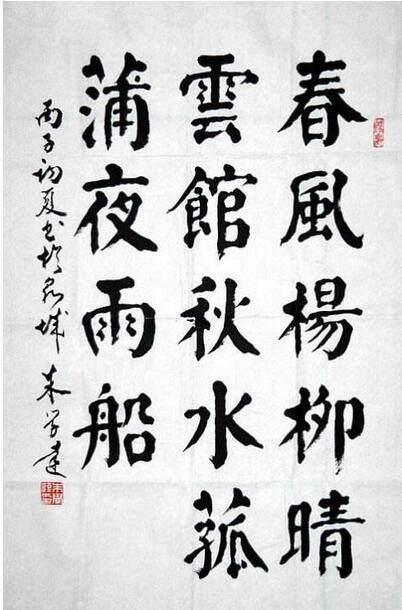 春風楊柳晴
雲館秋水菰
蒲夜雨船
丙子初夏书於泉城 朱学達